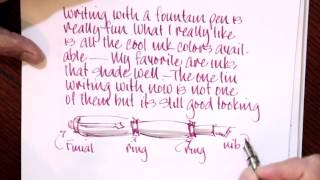 Writing with a fountain pen is
really fun. What I really like
is all the cool ink colors avail-
able — My favorite are inks
that shade well — The one I'm
writing with now is not one
of them but its still good looking
Finial ring ring nib